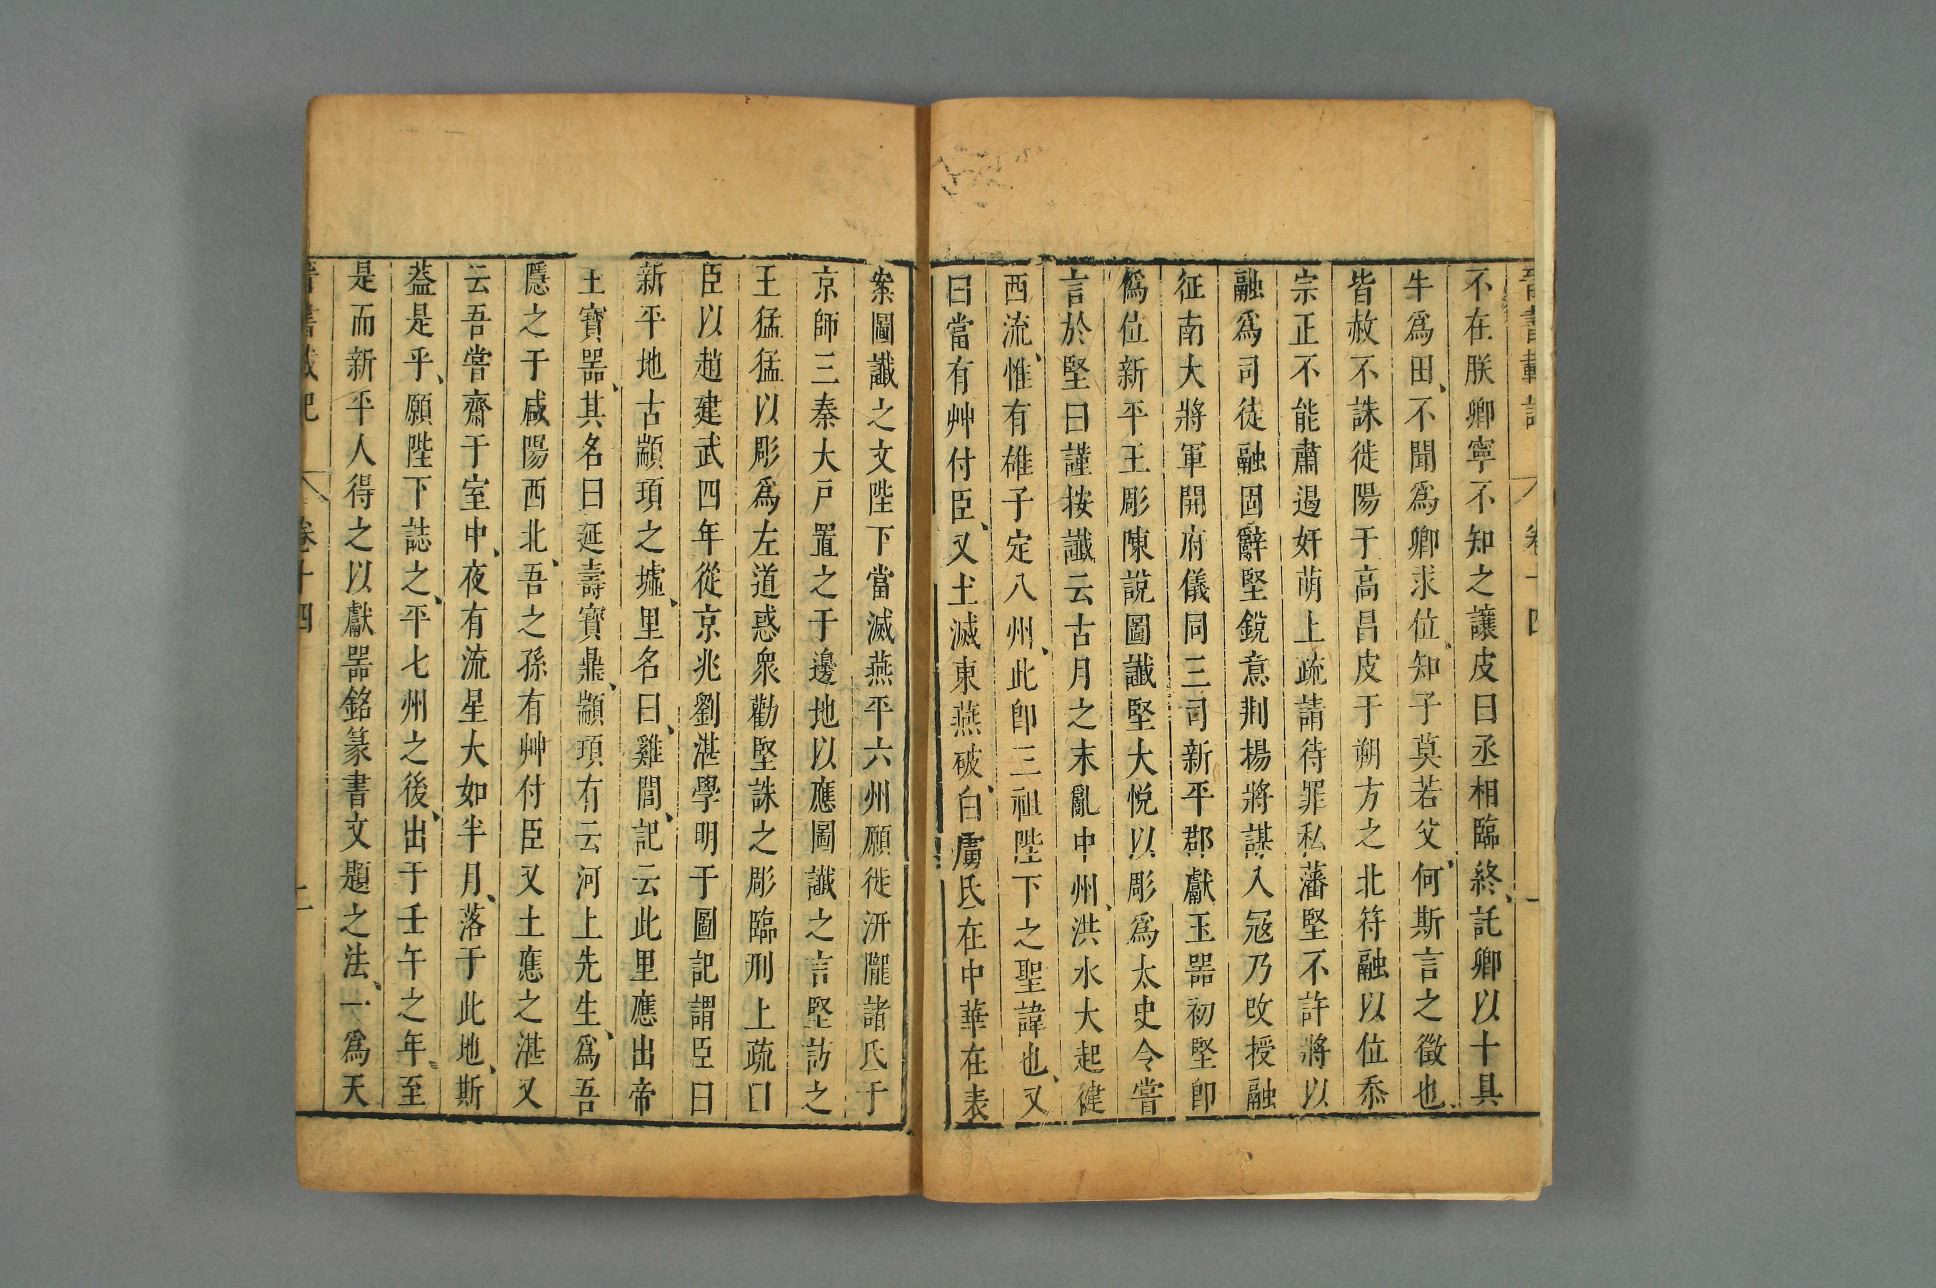 晉書載記 卷十四
不在朕卿寧不知之讓皮曰丞相臨終、託卿以十具
牛爲田、不聞爲卿求位、知子莫若父、何斯言之徵也
皆赦不誅徙陽于高昌皮于朔方之北苻融以位忝
宗正不能肅遏奸萌上疏請待罪私藩堅不許將以
融爲司徒融固辭堅銳意荆揚將謀入寇乃改授融
征南大將軍開府儀同三司新平郡獻玉器初堅卽
僞位新平王彫陳說圖讖堅大悅以彫爲太史令嘗
言於堅曰謹按讖云古月之末亂中州、洪水大起健
西流、惟有雄子定八州、此卽三祖陛下之聖諱也、又
曰當有艸付臣、又土滅東燕破、白虜氏在中華在表
案圖讖之文陛下當滅燕平六州願徙汧隴諸氏于
京師三秦大戸置之于邊地以應圖讖之言堅訪之
王猛猛以彫爲左道惑衆勸堅誅之彫臨刑上疏曰
臣以趙建武四年從京兆劉湛學明于圖記謂臣曰
新平地古顓頊之墟、里名曰、雞閭、記云此里應出帝
王寶器、其名曰延壽寶鼎、顓頊有云河上先生、爲吾
隱之于咸陽西北、吾之孫有艸付臣又土應之湛又
云吾嘗齋于室中、夜有流星大如半月、落于此地、斯
葢是乎、願陛下誌之、平七州之後、出于壬午之年、至
是而新平人得之以獻器銘篆書文題之法、一爲天
晉書載記 卷十四 二